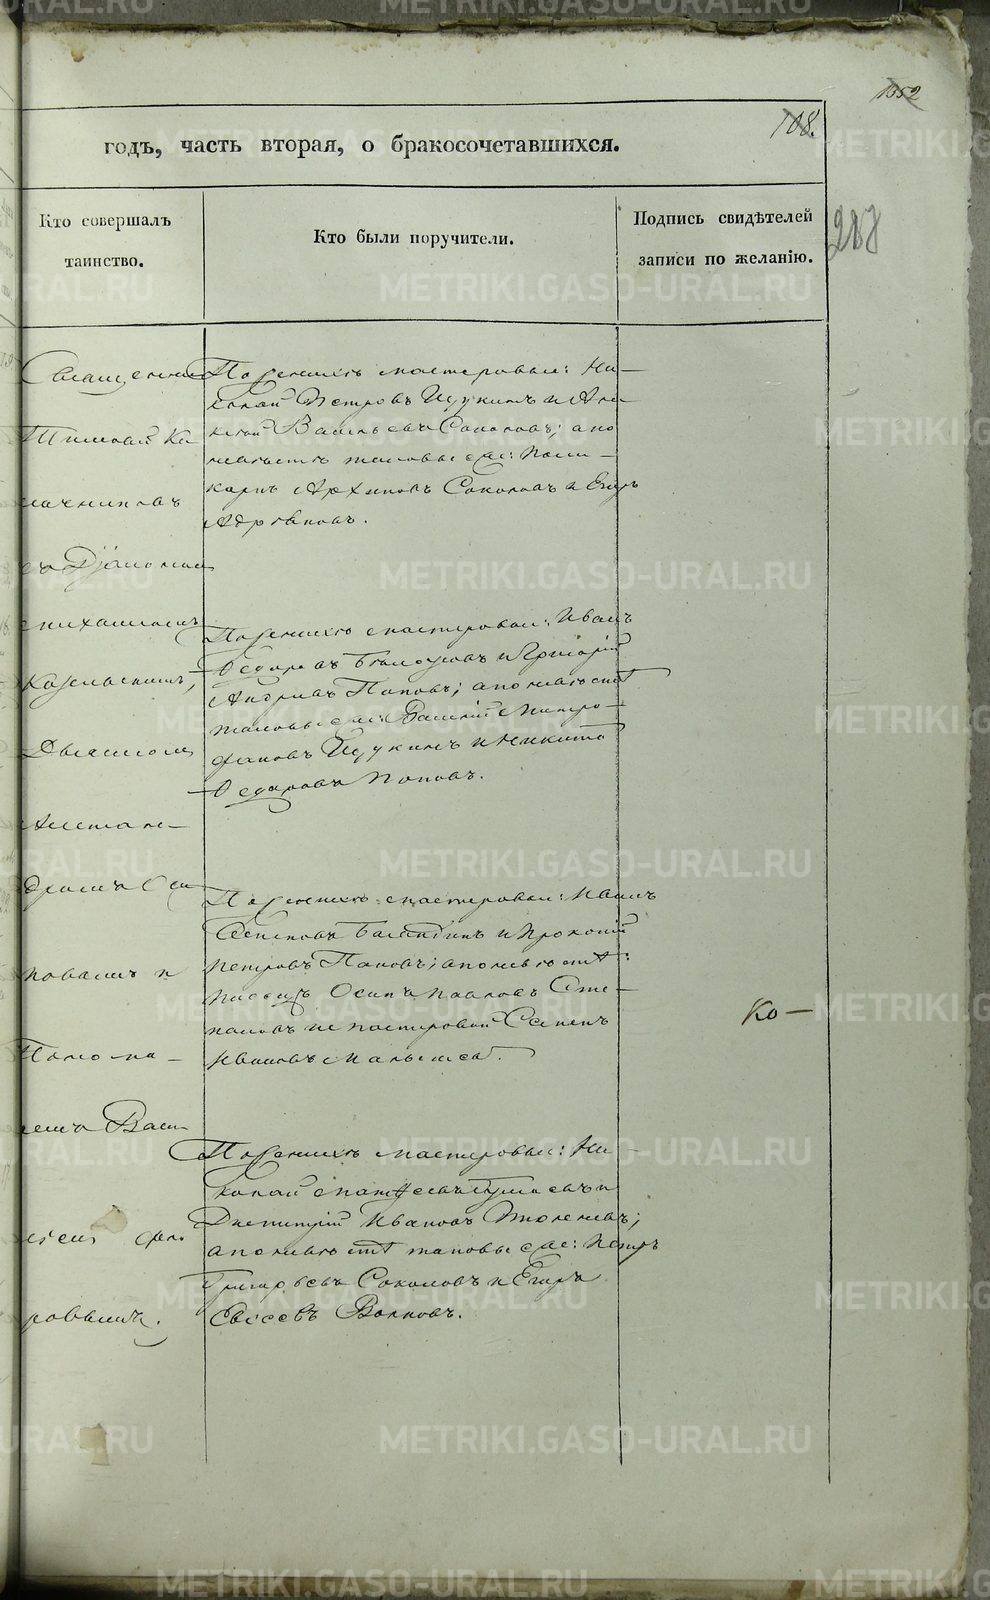 1052
108.
годъ, часть вторая, о бракосочетавшихся.
Кто совершалъ
таинство.
Кто были поручители.
Подпись свидѣтелей
записи по желанію.
287
Священникъ
Тимофей Ка
лачниковъ
съ Діакономъ
Козельскимъ,
Дьячкомъ
Алексан-
дромъ
повымъ и
Понома-
ремъ Васи
ровымъ.
По женихѣ мастеровые: Ни-
колай Петровъ Щукинъ и Але
ксѣй Васильевъ Соколовъ; а по
невѣстѣ таковые же: Поли-
карпъ Архиповъ Соколовъ и Егоръ
Андреяновъ.
По женихѣ мастеровые: Иванъ
Ѳедоровъ Бѣлоусовъ и Григорій
Андреевъ Поповъ; а по невѣстѣ
таковые же: Василій Митро-
фановъ Щукинъ и Никита
Ѳедоровъ Поповъ.
По женихѣ мастеровые: Иванъ
Семеновъ Баландинъ и Прокопій
Петровъ Поповъ; а по невѣстѣ:
Осипъ Павловъ Сте-
пановъ и мастеровой Семенъ
Ивановъ
По женихѣ мастеровые: Ни-
колай Матѳеевъ и
Дмитрій Ивановъ
а по невѣстѣ таковые же: Петръ
Григорьевъ Соколовъ и Егоръ
Волковъ.
Ко-
METRIKI.GASO-URAL.RU